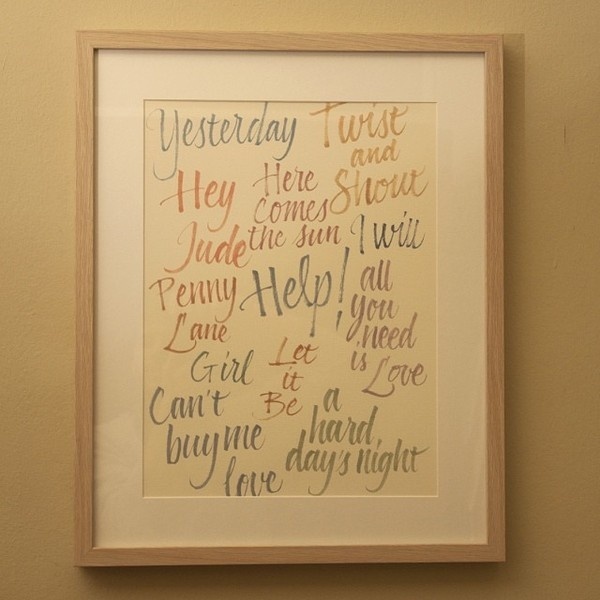 Yesterday
Twist
and
Shout
Hey
Jude
Here
comes
the sun
I will
Penny
Lane
Help!
all
you
need
is
Love
Girl
Let
it
Be
Can't
buy me
love
a
hard
day's night